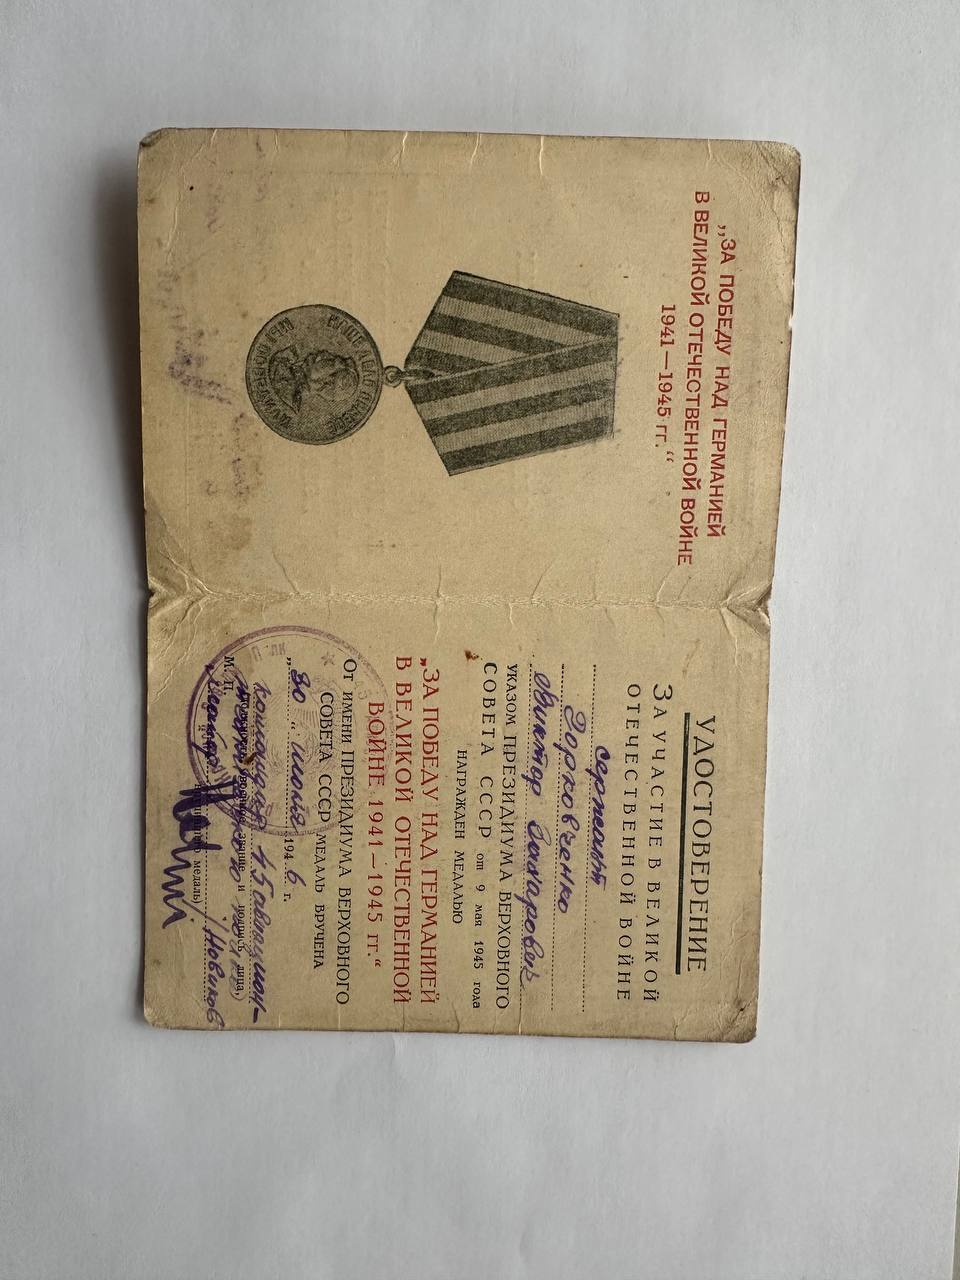 „ЗА ПОБЕДУ НАД ГЕРМАНИЕЙ
В ВЕЛИКОЙ ОТЕЧЕСТВЕННОЙ ВОЙНЕ
1941—1945 гг.“
УДОСТОВЕРЕНИЕ
ЗА УЧАСТИЕ В ВЕЛИКОЙ
ОТЕЧЕСТВЕННОЙ ВОЙНЕ
сержант
Виктор
УКАЗОМ ПРЕЗИДИУМА ВЕРХОВНОГО
СОВЕТА СССР от 9 мая 1945 года
НАГРАЖДЕН МЕДАЛЬЮ
„ЗА ПОБЕДУ НАД ГЕРМАНИЕЙ
В ВЕЛИКОЙ ОТЕЧЕСТВЕННОЙ
ВОЙНЕ 1941—1945 гг.“
От ИМЕНИ ПРЕЗИДИУМА ВЕРХОВНОГО
СОВЕТА СССР МЕДАЛЬ ВРУЧЕНА
„30“ июня 1946 г.
командир 45 авиацион-
М. П.
звание и подпись лица,
медаль)
/Новиков